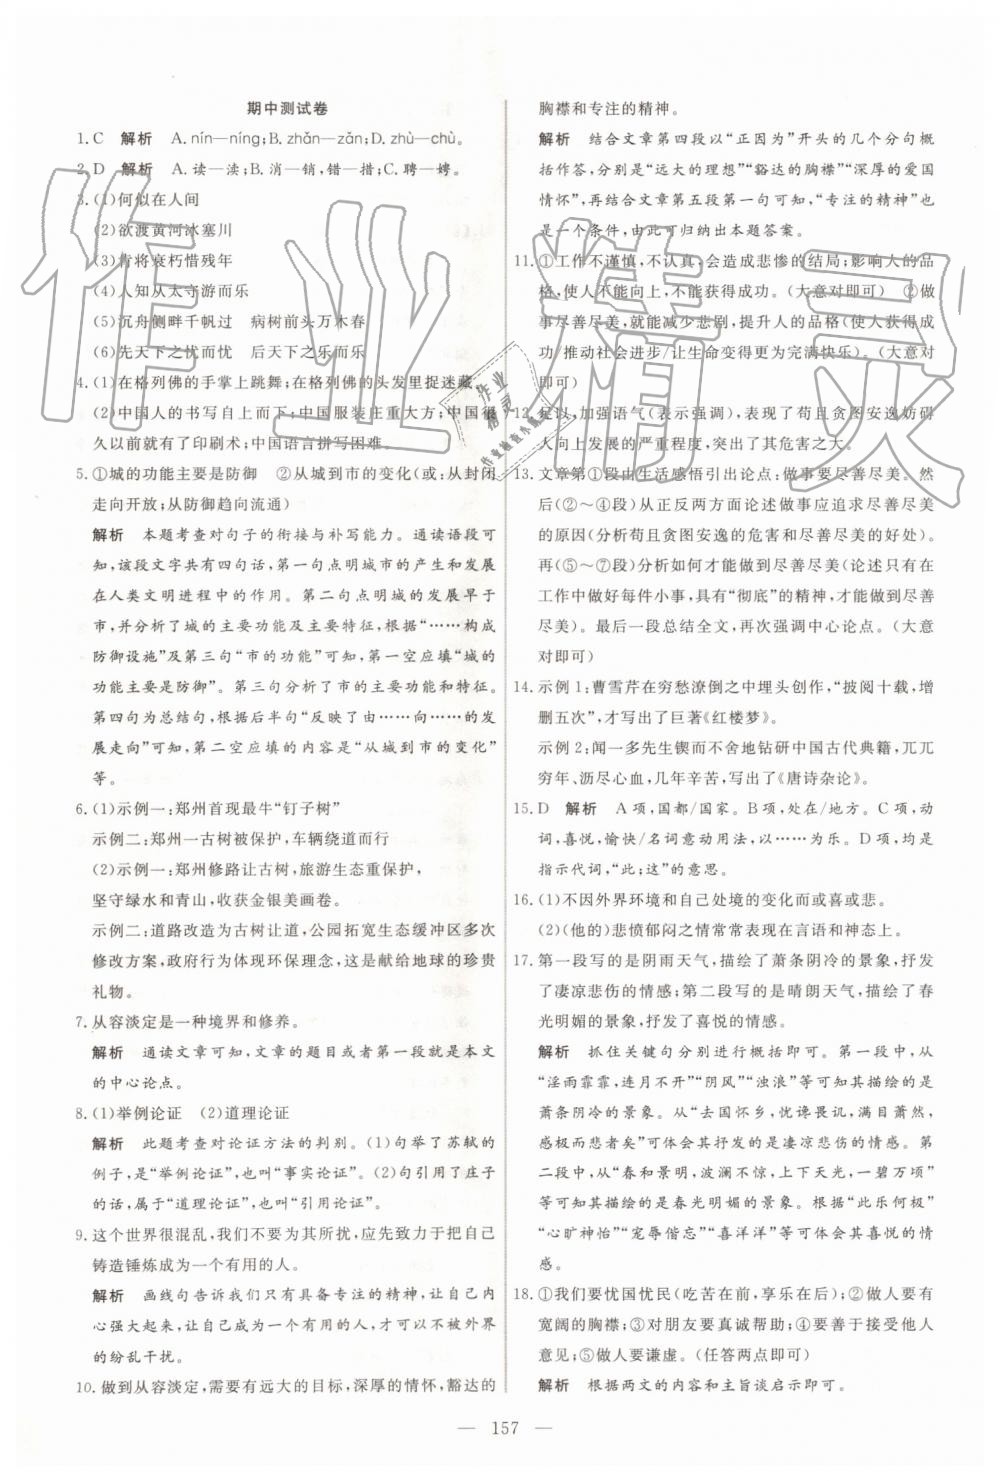 期中测试卷
1. C　解析　A. nín—níng；B. zhǎn—zǎn；D. zhù—chù。
2. D　解析　A. 读—渎；B. 消—销，错—措；C. 聘—娉。
3. (1)何似在人间
(2)欲渡黄河冰塞川
(3)肯将衰朽惜残年
(4)人知从太守游而乐
(5)沉舟侧畔千帆过　病树前头万木春
(6)先天下之忧而忧　后天下之乐而乐
4. (1)在格列佛的手掌上跳舞；在格列佛的头发里捉迷藏
(2)中国人的书写自上而下；中国服装庄重大方；中国很
久以前就有了印刷术；中国语言拼写困难。
5. ①城的功能主要是防御　②从城到市的变化(或：从封闭
走向开放；从防御趋向流通)
解析　本题考查对句子的衔接与补写能力。通读语段可
知，该段文字共有四句话，第一句点明城市的产生和发展
在人类文明进程中的作用。第二句点明城的发展早于
市，并分析了城的主要功能及主要特征，根据“……构成
防御设施”及第三句“市的功能”可知，第一空应填“城的
功能主要是防御”。第三句分析了市的主要功能和特征。
第四句为总结句，根据后半句“反映了由……向……的发
展走向”可知，第二空应填的内容是“从城到市的变化”
等。
6. (1)示例一：郑州首现最牛“钉子树”
示例二：郑州一古树被保护，车辆绕道而行
(2)示例一：郑州修路让古树，旅游生态重保护，
坚守绿水和青山，收获金银美画卷。
示例二：道路改造为古树让道，公园拓宽生态缓冲区多次
修改方案，政府行为体现环保理念，这是献给地球的珍贵
礼物。
7. 从容淡定是一种境界和修养。
解析　通读文章可知，文章的题目或者第一段就是本文
的中心论点。
8. (1)举例论证　(2)道理论证
解析　此题考查对论证方法的判别。(1)句举了苏轼的
例子，是“举例论证”，也叫“事实论证”。(2)句引用了庄子
的话，属于“道理论证”，也叫“引用论证”。
9. 这个世界很混乱，我们不要为其所扰，应先致力于把自己
铸造锤炼成为一个有用的人。
解析　画线句告诉我们只有具备专注的精神，让自己内
心强大起来，让自己成为一个有用的人，才可以不被外界
的纷乱干扰。
10. 做到从容淡定，需要有远大的目标，深厚的情怀，豁达的
胸襟和专注的精神。
解析　结合文章第四段以“正因为”开头的几个分句概
括作答，分别是“远大的理想”“豁达的胸襟”“深厚的爱国
情怀”，再结合文章第五段第一句可知，“专注的精神”也
是一个条件，由此可归纳出本题答案。
11. ①工作不谨慎，不认真，会造成悲惨的结局；影响人的品
格，使人不能向上，不能获得成功。(大意对即可)　②做
事尽善尽美，就能减少悲剧，提升人的品格(使人获得成
功/推动社会进步/让生命变得更为完满快乐)。(大意对
即可)
12. 足以，加强语气(表示强调)，表现了苟且贪图安逸妨碍
人向上发展的严重程度，突出了其危害之大。
13. 文章第①段由生活感悟引出论点：做事要尽善尽美。然
后(②～④段)从正反两方面论述做事应追求尽善尽美
的原因(分析苟且贪图安逸的危害和尽善尽美的好处)。
再(⑤～⑦段)分析如何才能做到尽善尽美(论述只有在
工作中做好每件小事，具有“彻底”的精神，才能做到尽善
尽美)。最后一段总结全文，再次强调中心论点。(大意
对即可)
14. 示例1：曹雪芹在穷愁潦倒之中埋头创作，“披阅十载，增
删五次”，才写出了巨著《红楼梦》。
示例2：闻一多先生锲而不舍地钻研中国古代典籍，兀兀
穷年、沥尽心血，几年辛苦，写出了《唐诗杂论》。
15. D　解析　A项，国都/国家。B项，处在/地方。C项，动
词，喜悦，愉快/名词意动用法，以……为乐。D项，均是
指示代词，“此；这”的意思。
16. (1)不因外界环境和自己处境的变化而或喜或悲。
(2)(他的)悲愤郁闷之情常常表现在言语和神态上。
17. 第一段写的是阴雨天气，描绘了萧条阴冷的景象，抒发
了凄凉悲伤的情感；第二段写的是晴朗天气，描绘了春
光明媚的景象，抒发了喜悦的情感。
解析　抓住关键句分别进行概括即可。第一段中，从
“淫雨霏霏，连月不开”“阴风”“浊浪”等可知其描绘的是
萧条阴冷的景象。从“去国怀乡，忧谗畏讥，满目萧然，
感极而悲者矣”可体会其抒发的是凄凉悲伤的情感。第
二段中，从“春和景明，波澜不惊，上下天光，一碧万顷”
等可知其描绘的是春光明媚的景象。根据“此乐何极”
“心旷神怡”“宠辱偕忘”“喜洋洋”等可体会其抒发喜悦的情
感。
18. ①我们要忧国忧民(吃苦在前，享乐在后)；②做人要有
宽阔的胸襟；③对朋友要真诚帮助；④要善于接受他人
意见；⑤做人要谦虚。(任答两点即可)
解析　根据两文的内容和主旨谈启示即可。
— 157 —
作业精灵